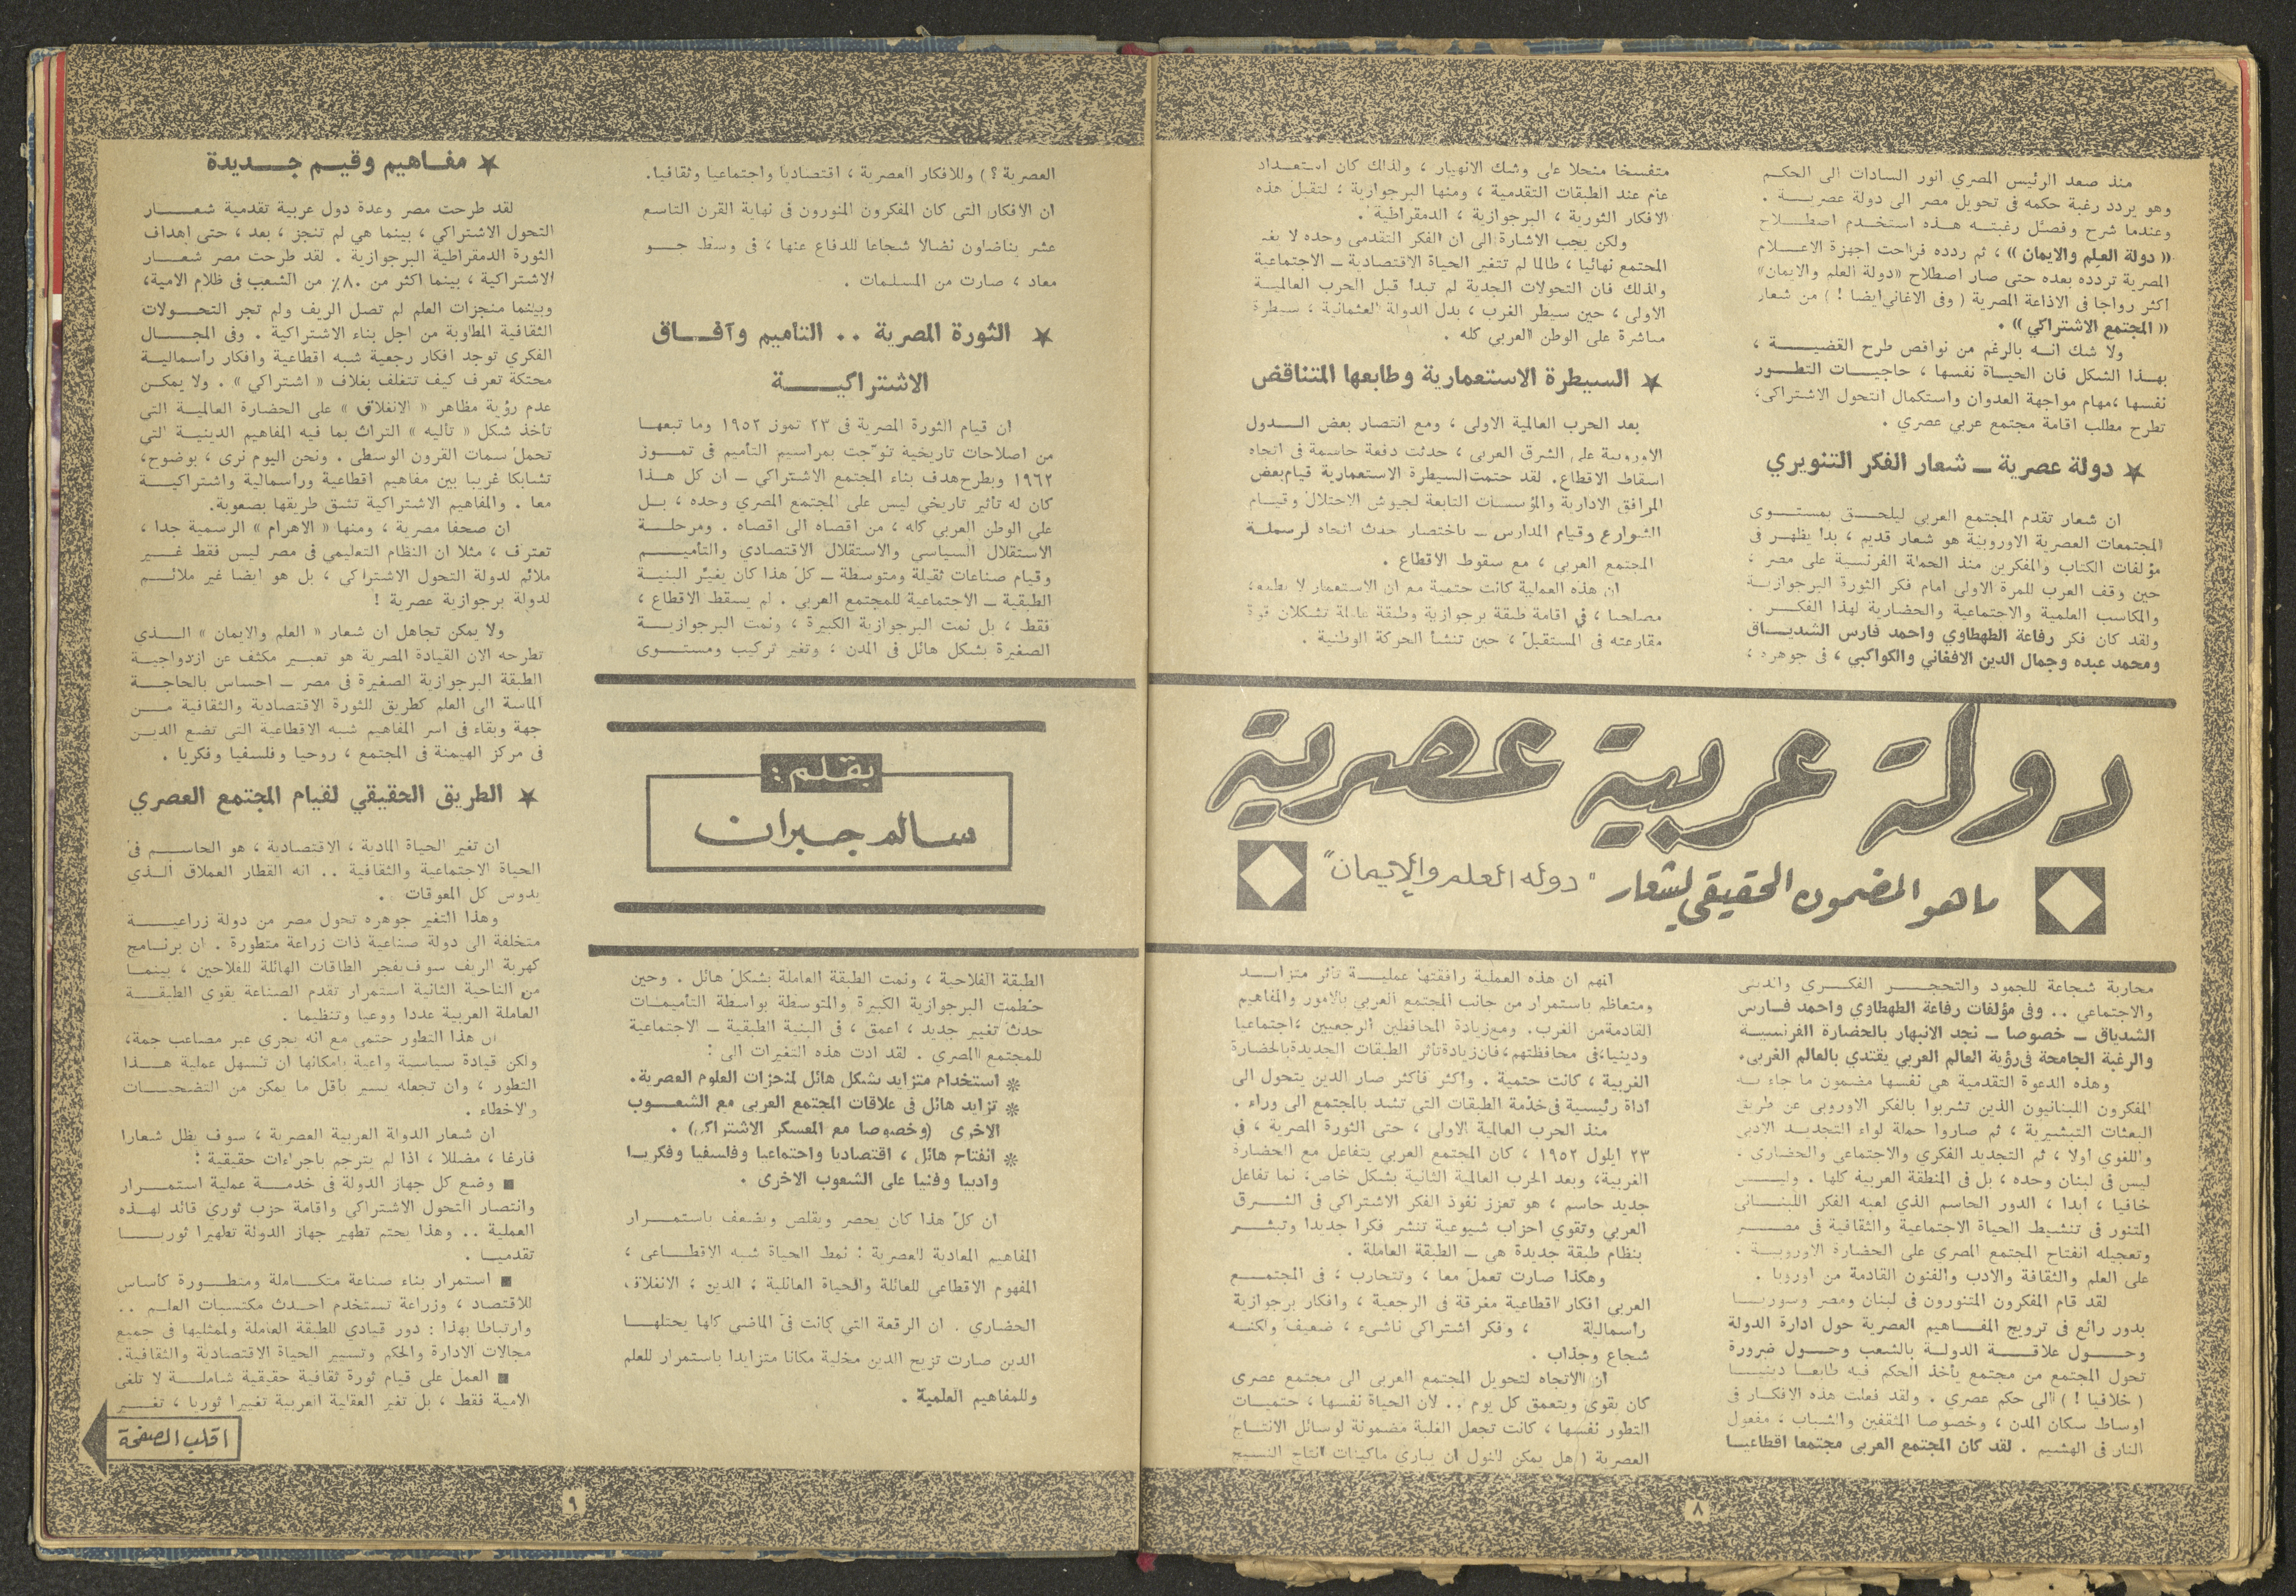 منذ صعد الرئيس المصري انور السادات الى الحكم
وهو يردد رغبة حكمه في تحويل مصر الى دولة عصرية .
وعندما شرح وفصّل رغبته هذه استخدم اصطلاح
« دولة العلم والايمان » ، ثم ردده فراحت اجهزة الاعلام
المصرية تردده بعده حتى صار اصطلاح «دولة العلم والايمان»
اكثر رواجا في الاذاعة المصرية ( وفي الاغاني ايضا ! ) من شعار
« المجتمع الاشتراكي » .
ولا شك انه بالرغم من نواقص طرح القضية ،
بهذا الشكل فان الحياة نفسها ، حاجيات التطور
نفسها ، مهام مواجهة العدوان واستكمال التحول الاشتراكي،
تطرح مطلب اقامة مجتمع عربي عصري .
★ دولة عصرية ــ شعار الفكر التنويري
ان شعار تقدم المجتمع العربي ليلحق بمستوى
المجتمعات العصرية الاوروبية هو شعار قديم ، بدا يظهر في
مؤلفات الكتاب والمفكرين منذ الحملة الفرنسية على مصر ،
حين وقف العرب للمرة الاولى امام فكر الثورة البرجوازية
والمكاسب العلمية والاجتماعية والحضارية لهذا الفكر .
ولقد كان فكر رفاعة الطهطاوي واحمد فارس الشدياق
ومحمد عبده وجمال الدين الافغاني والكواكبي ، في جوهره ،
دولة عربية عصرية
ما هو المضمون الحقيقي لشعار "دولة العلم والإيمان"
محاربة شجاعة للجمود والتحجر الفكري والديني
والاجتماعي .. وفي مؤلفات رفاعة الطهطاوي واحمد فارس
الشدياق ــ خصوصا ــ نجد الانبهار بالحضارة الفرنسية
والرغبة الجامحة في رؤية العالم العربي يقتدي بالعالم الغربي.
وهذه الدعوة التقدمية هي نفسها مضمون ما جاء به
المفكرون اللبنانيون الذين تشربوا بالفكر الاوروبي عن طريق
البعثات التبشيرية ، ثم صاروا حملة لواء التجديد الادبي
واللغوي اولا ، ثم التجديد الفكري والاجتماعي والحضاري .
ليس في لبنان وحده ، بل في المنطقة العربية كلها . وليس
خافيا ، ابدا ، الدور الحاسم الذي لعبه الفكر اللبناني
المتنور في تنشيط الحياة الاجتماعية والثقافية في مصر
وتعجيله انفتاح المجتمع المصري على الحضارة الاوروبية .
على العلم والثقافة والادب والفنون القادمة من اوروبا .
لقد قام المفكرون المتنورون في لبنان ومصر وسوريا
بدور رائع في ترويج المفاهيم العصرية حول ادارة الدولة
وحول علاقة الدولة بالشعب وحول ضرورة
تحول المجتمع من مجتمع يأخذ الحكم فيه طابعا دينيا
( خلافيا ! ) الى حكم عصري . ولقد فعلت هذه الافكار في
اوساط سكان المدن ، وخصوصا المثقفين والشباب ، مفعول
النار في الهشيم . لقد كان المجتمع العربي مجتمعا اقطاعيا
متفسخا منحلا على وشك الانهيار ، ولذلك كان استعداد
عام عند الطبقات التقدمية ، ومنها البرجوازية ، لتقبل هذه
الافكار الثورية ، البرجوازية ، الدمقراطية .
ولكن يجب الاشارة الى ان الفكر التقدمي وحده لا يغير
المجتمع نهائيا ، طالما لم تتغير الحياة الاقتصادية ــ الاجتماعية
ولذلك فان التحولات الجدية لم تبدا قبل الحرب العالمية
الاولى ، حين سيطر الغرب ، بدل الدولة العثمانية ، سيطرة
مباشرة على الوطن العربي كله .
★ السيطرة الاستعمارية وطابعها المتناقض
بعد الحرب العالمية الاولى ، ومع انتصار بعض الدول
الاوروبية على الشرق العربي ، حدثت دفعة حاسمة في اتجاه
اسقاط الاقطاع. لقد حتمت السيطرة الاستعمارية قيام بعض
المرافق الادارية والمؤسسات التابعة لجيوش الاحتلال وقيام
الشوارع وقيام المدارس ــ باختصار حدث اتجاه لرسملة
المجتمع العربي ، مع سقوط الاقطاع .
ان هذه العملية كانت حتمية مع ان الاستعمار لا
مصلحة ، في اقامة طبقة برجوازية وطبقة عاملة تشكلان قوة
مقارعته في المستقبل ، حين تنشأ الحركة الوطنية .
المهم ان هذه العملية رافقتها عملية تأثر متزايد
ومتعاظم باستمرار من جانب المجتمع العربي بالامور والمفاهيم
القادمة من الغرب. ومع زيادة المحافظين الرجعيين ، اجتماعيا
ودينيا، في محافظتهم، فان زيادة تأثر الطبقات الجديدة بالحضارة
الغربية ، كانت حتمية . واكثر فأكثر صار الدين يتحول الى
اداة رئيسية في خدمة الطبقات التي تشد بالمجتمع الى وراء .
منذ الحرب العالمية الاولى ، حتى الثورة المصرية ، في
٢٣ ايلول ١٩٥٢ ، كان المجتمع العربي يتفاعل مع الحضارة
الغربية، وبعد الحرب العالمية الثانية بشكل خاص، نما تفاعل
جديد حاسم ، هو تعزز نفوذ الفكر الاشتراكي في الشرق
العربي وتقوي احزاب شيوعية تنشر فكرا جديدا وتبشر
بنظام طبقة جديدة هي ــ الطبقة العاملة .
وهكذا صارت تعمل معا ، وتتحارب ، في المجتمع
العربي افكار اقطاعية مغرقة في الرجعية ، وافكار برجوازية
رأسمالية ، وفكر اشتراكي ناشيء ، ضعيف ولكنه
شجاع وجذاب .
ان الاتجاه لتحويل المجتمع العربي الى مجتمع عصري
كان يقوى ويتعمق كل يوم .. لان الحياة نفسها ، حتميات
التطور نفسها ، كانت تجعل الغلبة مضمونة لوسائل الانتاج
العصرية ( هل يمكن للنول ان يباري ماكينات انتاج النسيج
٨
العصرية ؟ ) وللافكار العصرية ، اقتصاديا واجتماعيا وثقافيا.
ان الافكار التي كان المفكرون المنورون في نهاية القرن التاسع
عشر يناضلون نضالا شجاعا للدفاع عنها ، في وسط جو
معاد ، صارت من المسلمات .
★ الثورة المصرية .. التاميم وآفاق
الاشتراكية
ان قيام الثورة المصرية في ٢٣ تموز ١٩٥٢ وما تبعها
من اصلاحات تاريخية توّجت بمراسيم التأميم في تموز
١٩٦٢ وبطرح هدف بناء المجتمع الاشتراكي ــ ان كل هذا
كان له تأثير تاريخي ليس على المجتمع المصري وحده ، بل
على الوطن العربي كله ، من اقصاه الى اقصاه . ومرحلة
الاستقلال السياسي والاستقلال الاقتصادي والتأميم
وقيام صناعات ثقيلة ومتوسطة ــ كل هذا كان يغيّر البنية
الطبقية ــ الاجتماعية للمجتمع العربي . لم يسقط الاقطاع ،
فقط ، بل نمت البرجوازية الكبيرة ، ونمت البرجوازية
الصغيرة بشكل هائل في المدن ، وتغير تركيب ومستوى
بقلم :
سالم جبران
الطبقة الفلاحية ، ونمت الطبقة العاملة بشكل هائل . وحين
حُطمت البرجوازية الكبيرة والمتوسطة بواسطة التأميمات
حدث تغيير جديد ، اعمق ، في البنية الطبقية ــ الاجتماعية
للمجتمع المصري . لقد ادت هذه التغيرات الى :
✻ استخدام متزايد بشكل هائل لمنجزات العلوم العصرية.
✻ تزايد هائل في علاقات المجتمع العربي مع الشعوب
الاخرى (وخصوصا مع المعسكر الاشتراكي) .
✻ انفتاح هائل ، اقتصاديا واجتماعيا وفلسفيا وفكريا
وادبيا وفنيا على الشعوب الاخرى .
ان كل هذا كان يحصر ويقلص ويضعف باستمرار
المفاهيم المعادية للعصرية : نمط الحياة شبه الاقطاعي ،
المفهوم الاقطاعي للعائلة والحياة العائلية ، الدين ، الانغلاق
الحضاري . ان الرقعة التي كانت في الماضي كلها يحتلها
الدين صارت تزيح الدين مخلية مكانا متزايدا باستمرار للعلم
وللمفاهيم العلمية .
★ مفاهيم وقيم جديدة
لقد طرحت مصر وعدة دول عربية تقدمية شعار
التحول الاشتراكي ، بينما هي لم تنجز ، بعد ، حتى اهداف
الثورة الدمقراطية البرجوازية . لقد طرحت مصر شعار
الاشتراكية ، بينما اكثر من ٨٠٪ من الشعب في ظلام الامية،
وبينما منجزات العلم لم تصل الريف ولم تجر التحولات
الثقافية المطلوبة من اجل بناء الاشتراكية . وفي المجال
الفكري توجد افكار رجعية شبه اقطاعية وافكار رأسمالية
محنكة تعرف كيف تتغلف بغلاف « اشتراكي » . ولا يمكن
عدم رؤية مظاهر « الانغلاق » على الحضارة العالمية التي
تأخذ شكل « تأليه » التراث بما فيه المفاهيم الدينية التي
تحمل سمات القرون الوسطى . ونحن اليوم نرى ، بوضوح،
تشابكا غريبا بين مفاهيم اقطاعية ورأسمالية واشتراكية
معا . والمفاهيم الاشتراكية تشق طريقها بصعوبة.
ان صحفا مصرية ، ومنها « الاهرام » الرسمية جدا ،
تعترف ، مثلا ان النظام التعليمي في مصر ليس فقط غير
ملائم لدولة التحول الاشتراكي ، بل هو ايضا غير ملائم
لدولة برجوازية عصرية !
ولا يمكن تجاهل ان شعار « العلم والايمان » الذي
تطرحه الان القيادة المصرية هو تعبير مكثف عن ازدواجية
الطبقة البرجوازية الصغيرة في مصر ــ احساس بالحاجة
الماسة الى العلم كطريق للثورة الاقتصادية والثقافية من
جهة وبقاء في اسر المفاهيم شبه الاقطاعية التي تضع الدين
في مركز الهيمنة في المجتمع ، روحيا وفلسفيا وفكريا .
★ الطريق الحقيقي لقيام المجتمع العصري
ان تغير الحياة المادية ، الاقتصادية ، هو الحاسم في
الحياة الاجتماعية والثقافية .. انه القطار العملاق الذي
يدوس كل المعوقات .
وهذا التغير جوهره تحول مصر من دولة زراعية
متخلفة الى دولة صناعية ذات زراعة متطورة . ان برنامج
كهربة الريف سوف يفجر الطاقات الهائلة للفلاحين ، بينما
من الناحية الثانية استمرار تقدم الصناعة يقوي الطبقة
العاملة العربية عددا ووعيا وتنظيما .
ان هذا التطور حتمي مع انه يجري عبر مصاعب جمة،
ولكن قيادة سياسية واعية بامكانها ان تسهل عملية هذا
التطور ، وان تجعله يسير باقل ما يمكن من التضحيات
والاخطاء .
ان شعار الدولة العربية العصرية ، سوف يظل شعارا
فارغا ، مضللا ، اذا لم يترجم باجراءات حقيقية :
■ وضع كل جهاز الدولة في خدمة عملية استمرار
وانتصار التحول الاشتراكي واقامة حزب ثوري قائد لهذه
العملية .. وهذا يحتم تطهير جهاز الدولة تطهيرا ثوريا
تقدميا .
■ استمرار بناء صناعة متكاملة ومتطورة كأساس
للاقتصاد ، وزراعة تستخدم احدث مكتسبات العلم ..
وارتباطا بهذا : دور قيادي للطبقة العاملة ولممثليها في جميع
مجالات الادارة والحكم وتسيير الحياة الاقتصادية والثقافية.
■ العمل على قيام ثورة ثقافية حقيقية شاملة لا تلغي
الامية فقط ، بل تغير العقلية العربية تغييرا ثوريا ، تغير
اقلب الصفحة
٩